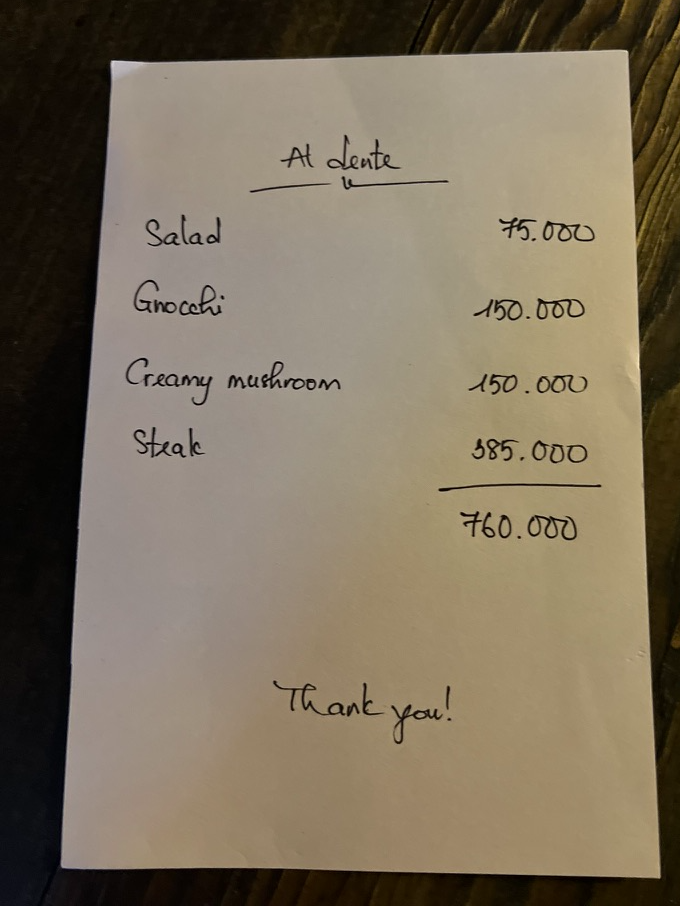 Al dente
Salad 75.000
Gnocchi 150.000
Creamy mushroom 150.000
Steak 385.000
760.000
Thank you!